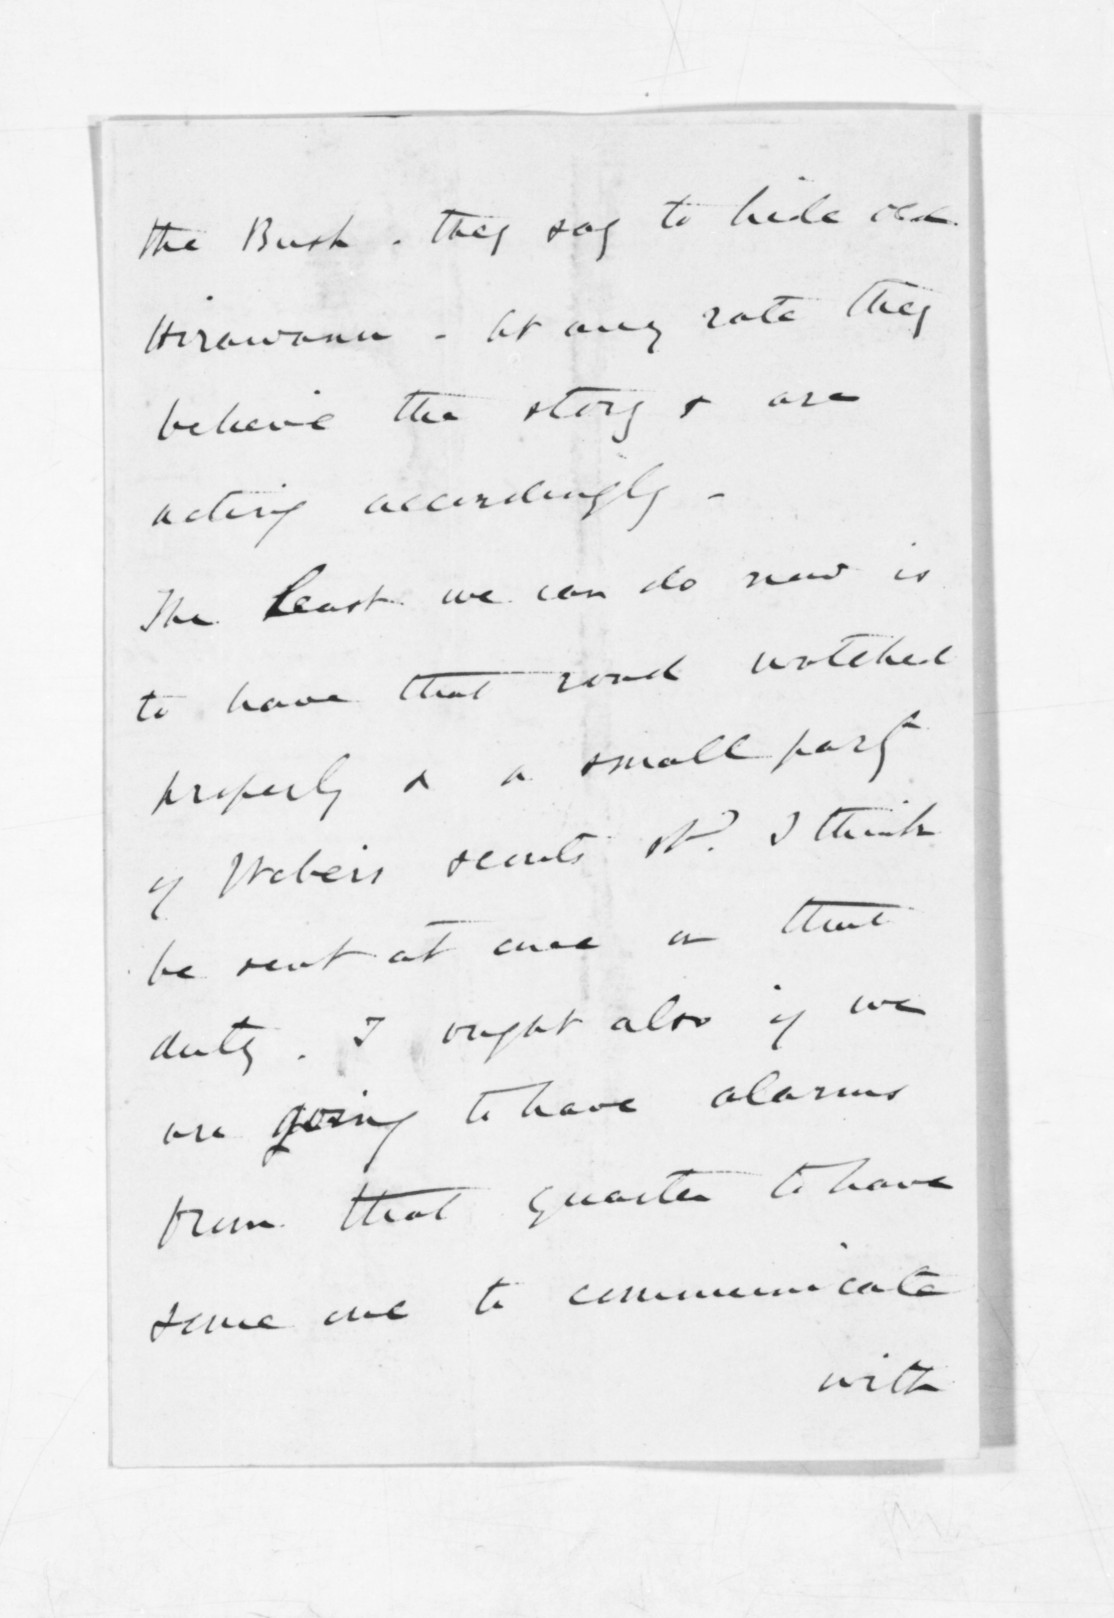 the Bush - they say to hide old
Hirawanu - At any rate they
believe the story & are
acting accordingly -
The least we can do now is
to have that road watched
properly & a small party
of Webers scouts shd. I think
be sent at once on that
duty. I ought also if we
are going to have alarms
from that quarter to have
some one to communicate
with